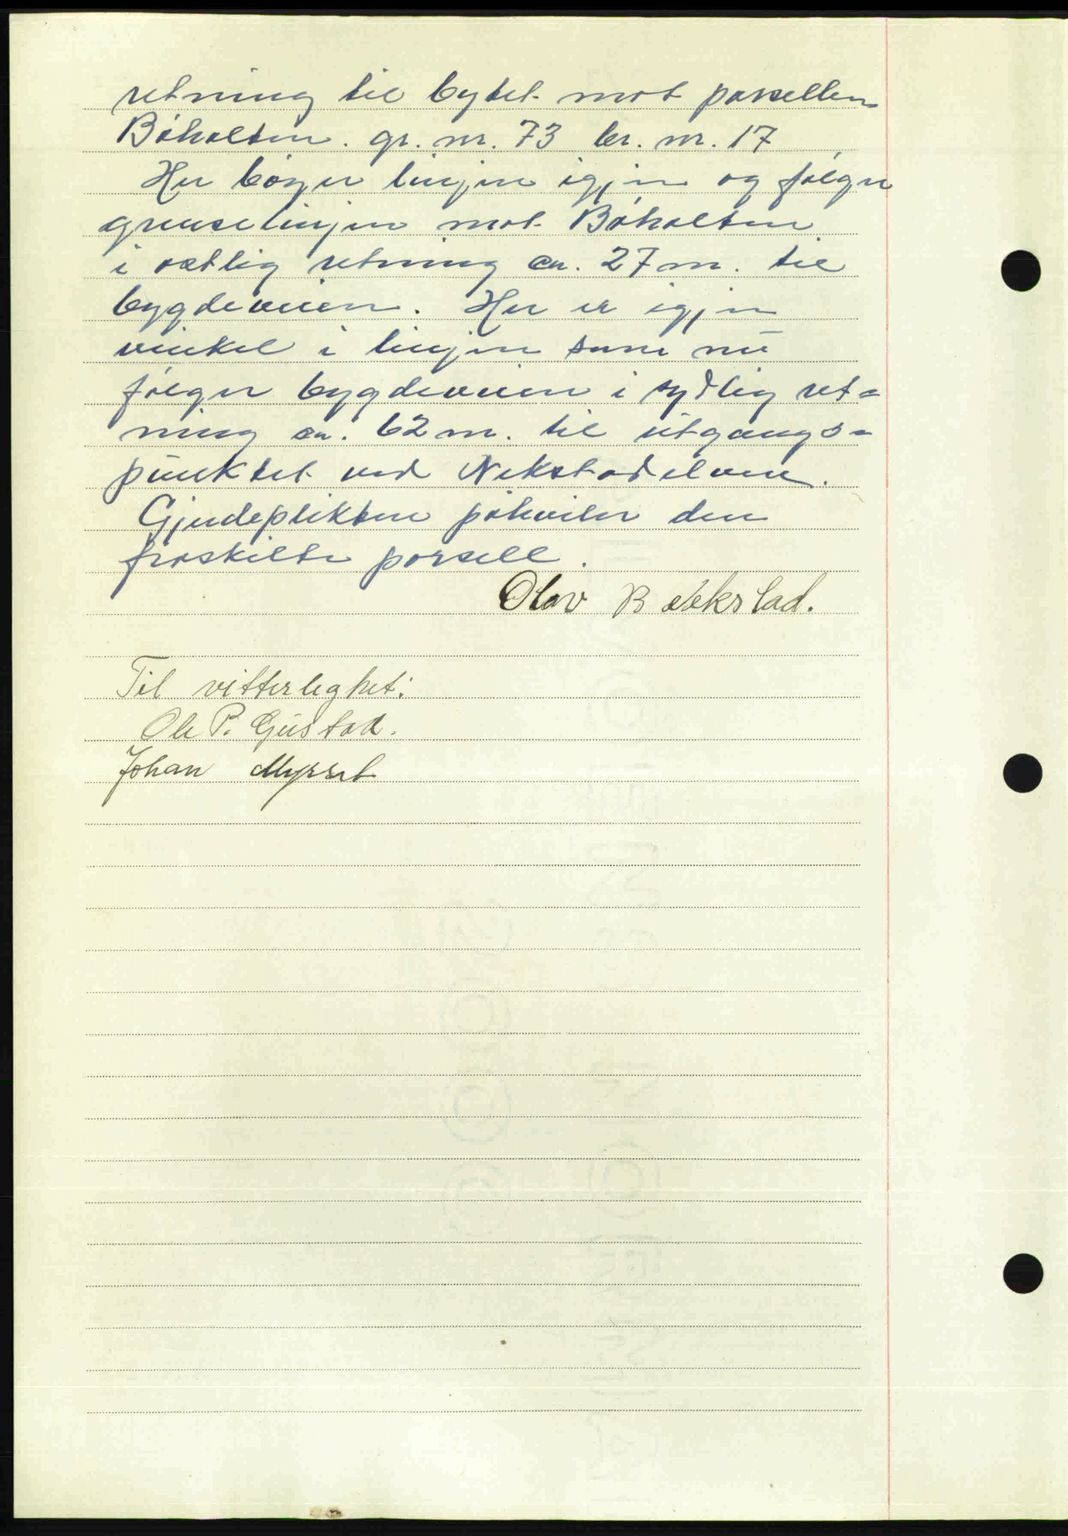 retning til bytet mot parsellen
Bøholten. gr. nr. 73 br. nr. 17
Her bøyer linjen igjen og følger
grenselinjen mot Bøholten
i østlig retning ca. 27 m. til
bygdeveien. Her er igjen
vinkel i linjen som nu
følger bygdeveien i sydlig ret=
ning ca. 62 m. til utgangs=
punktet ved Nekstadelven.
Gjerdeplikten påhviler den
fraskilte parsell.
Olav Bækkstad.
Til vitterlighet:
Ole P. Gustad.
Johan Myrset